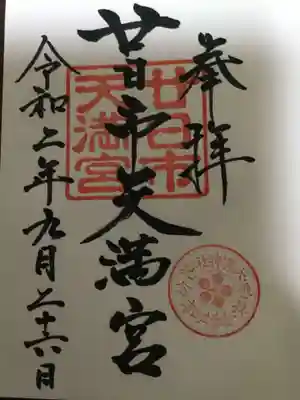 奉拝
廿日市天満宮
令和二年九月二十六日
廿日市
天満宮